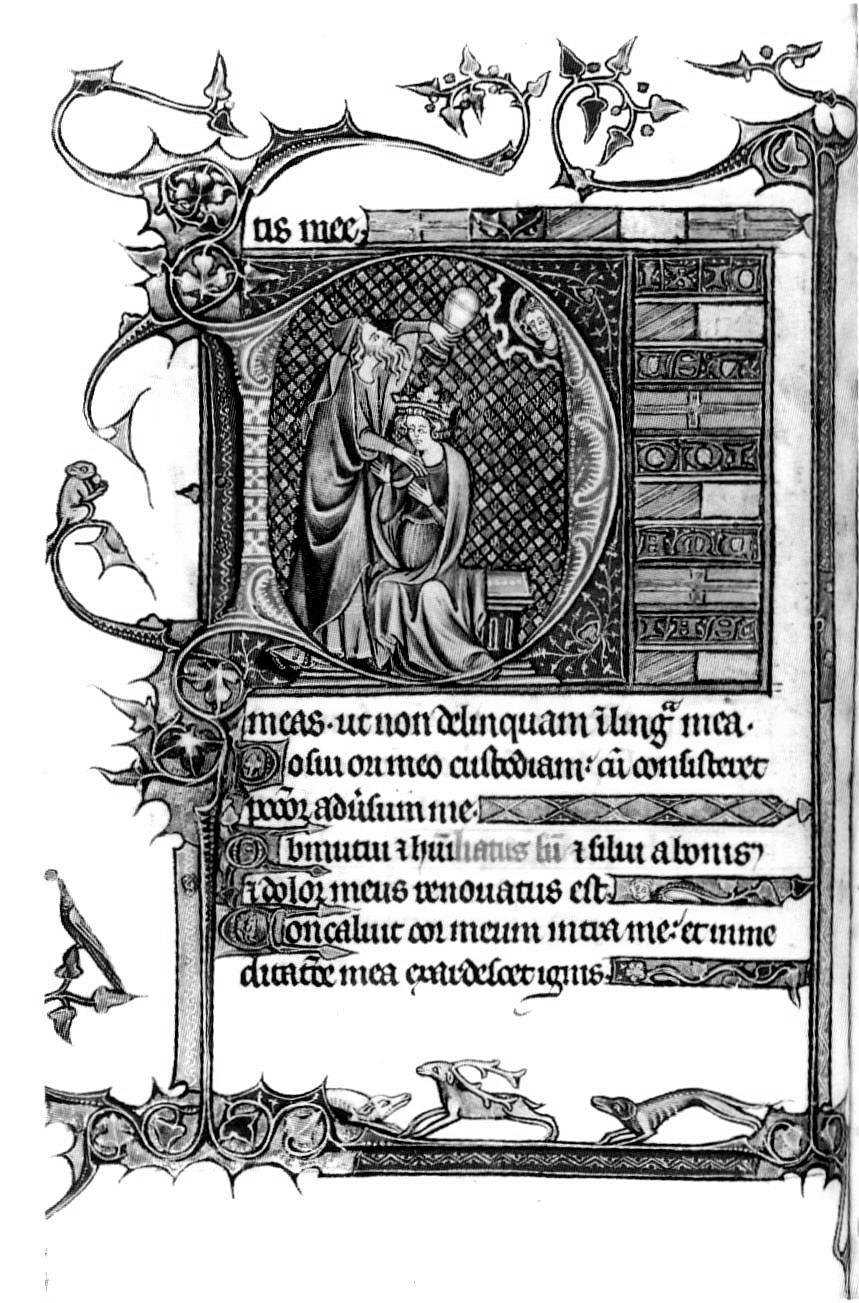 tis mee;
D
IXI C
UST
ODI
AMU
IAS
meas· ut non delinquam ĩ lingᵃ mea·
Posui ori meo custodiam: cũ consisteret
pccõꝛ adũsum me·
Obmutui ⁊ hũiliatus sũ ⁊ silui a bonis
⁊ doloꝛ meus renouatus est·
Concaluit cor meum intra me: et in me
ditacõe mea exardescet ignis·